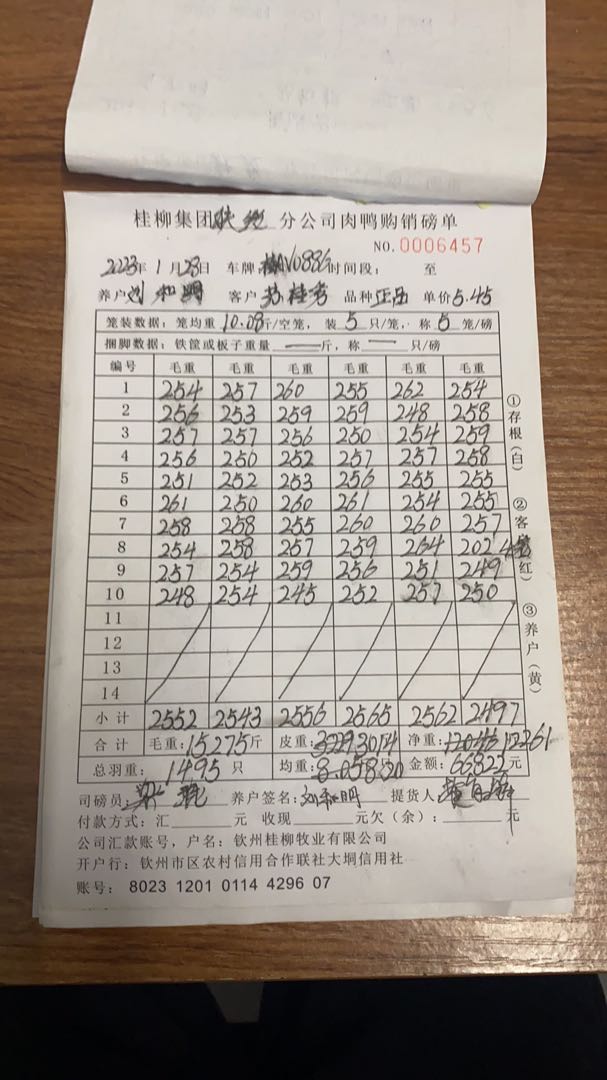 桂柳集团 分公司肉鸭购销磅单
NO.0006457
2023年1月28日 车牌 V0886时间段: 至
养户刘和明 客户苏桂秀 品种正西 单价5.45
笼装数据:笼均重10.08斤/空笼,装5只/笼,称5笼/磅
捆脚数据:铁筐或板子重量—斤,称—只/磅
编号 毛重 毛重 毛重 毛重 毛重 毛重
1 254 257 260 255 262 254
2 256 253 259 259 248 258
3 257 257 256 250 254 259
4 256 250 252 257 257 258
5 251 252 253 256 255 255
6 261 250 260 261 254 255
7 258 258 255 260 260 257
8 254 258 257 259 264 202 4笼
9 257 254 259 256 251 249
10 248 254 245 252 257 250
11
12
13
14
小计 2552 2543 2556 2565 2562 2497
合计 毛重:15275斤 皮重:3014 净重:12261
总羽重:1495只 均重:8.20 金额:66822元
司磅员: 养户签名:刘和明 提货人:
付款方式:汇 元 收现 元欠(余): 元
公司汇款账号,户名:钦州桂柳牧业有限公司
开户行:钦州市区农村信用合作联社大垌信用社
账号:8023 1201 0114 4296 07
①存根(白)
②客 (红)
③养户(黄)